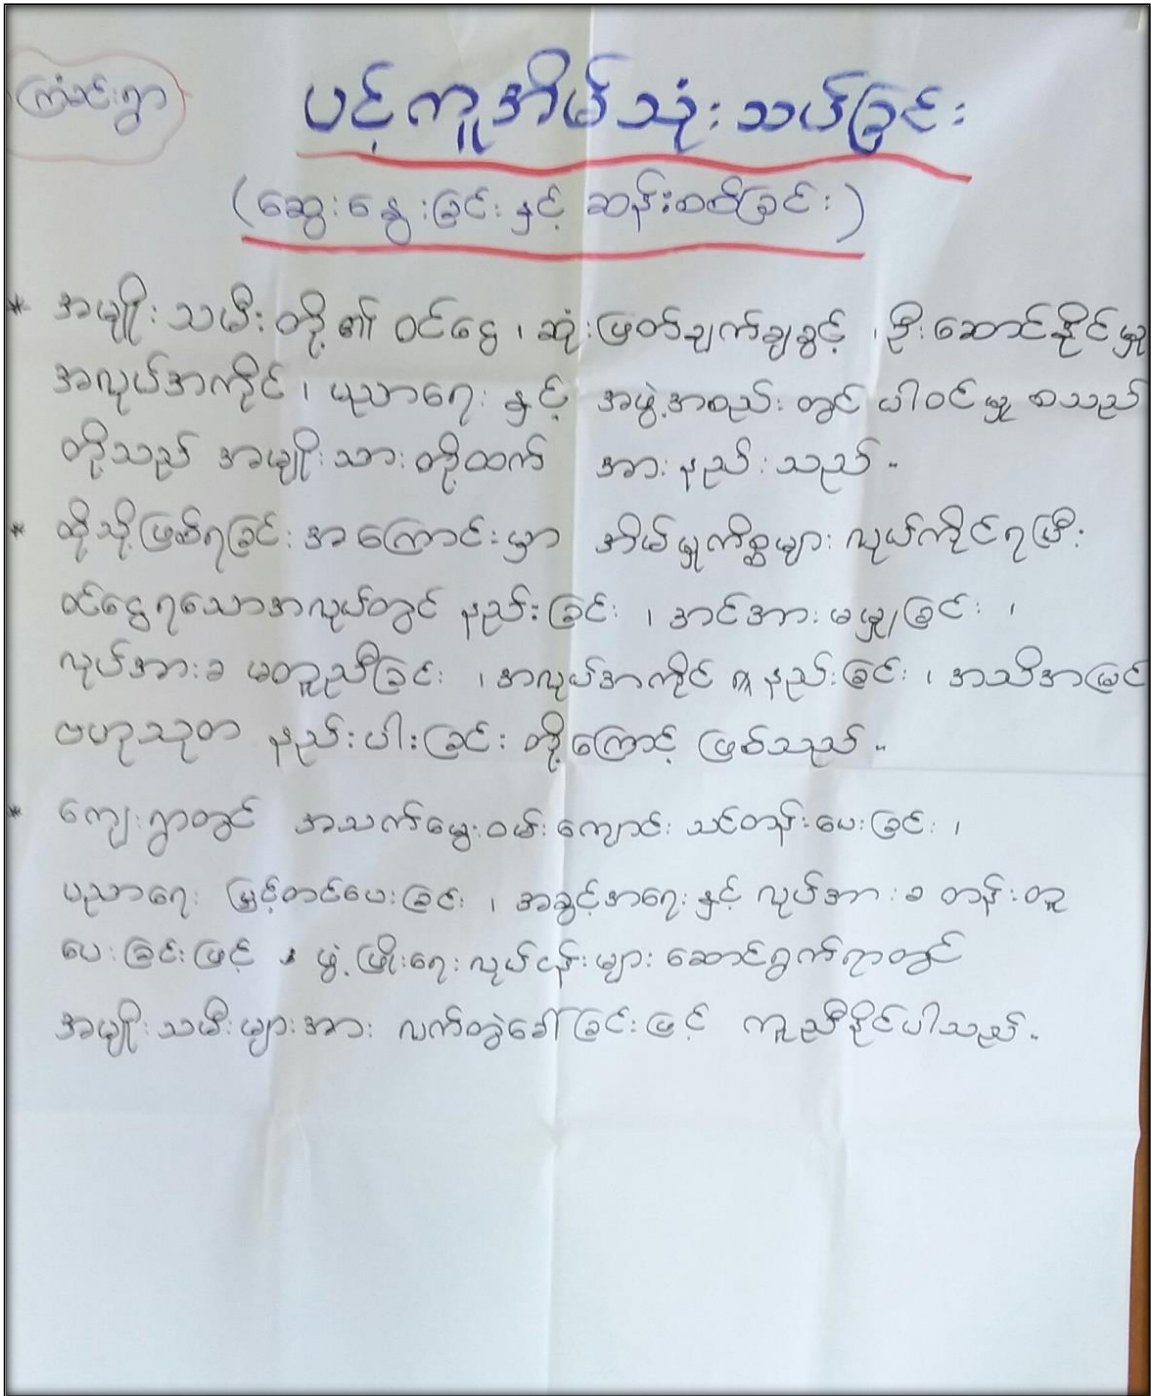 ကြံခင်းရွာ
ပင့်ကူအိမ်သုံးသပ်ခြင်း
(ဆွေးနွေးခြင်းနှင့် ဆန်းစစ်ခြင်း)
* အမျိုးသမီးတို့၏ ဝင်ငွေ၊ ဆုံးဖြတ်ချက်ချခွင့်၊ ဦးဆောင်နိုင်မှု
အလုပ်အကိုင်၊ ပညာရေး နှင့် အဖွဲ့အစည်းတွင် ပါဝင်မှု စသည်
တို့သည် အမျိုးသားတို့ထက် အားနည်းသည်။
* ထိုသို့ဖြစ်ရခြင်း အကြောင်းမှာ အိမ်မှုကိစ္စများ လုပ်ကိုင်ရပြီး
ဝင်ငွေရသောအလုပ်တွင် နည်းခြင်း၊ အင်အားမမျှခြင်း၊
လုပ်အားခ မတူညီခြင်း၊ အလုပ်အကိုင် ရှားနည်းခြင်း၊ အသိအမြင်
ဗဟုသုတ နည်းပါးခြင်း တို့ကြောင့် ဖြစ်သည်။
* ကျေးရွာတွင် အသက်မွေးဝမ်းကျောင်း သင်တန်းပေးခြင်း၊
ပညာရေး မြှင့်တင်ပေးခြင်း၊ အခွင့်အရေးနှင့် လုပ်အားခ တန်းတူ
ပေးခြင်းဖြင့် ဖွံ့ဖြိုးရေးလုပ်ငန်းများ ဆောင်ရွက်ရာတွင်
အမျိုးသမီးများအား လက်တွဲခေါ်ခြင်းဖြင့် ကူညီနိုင်ပါသည်။